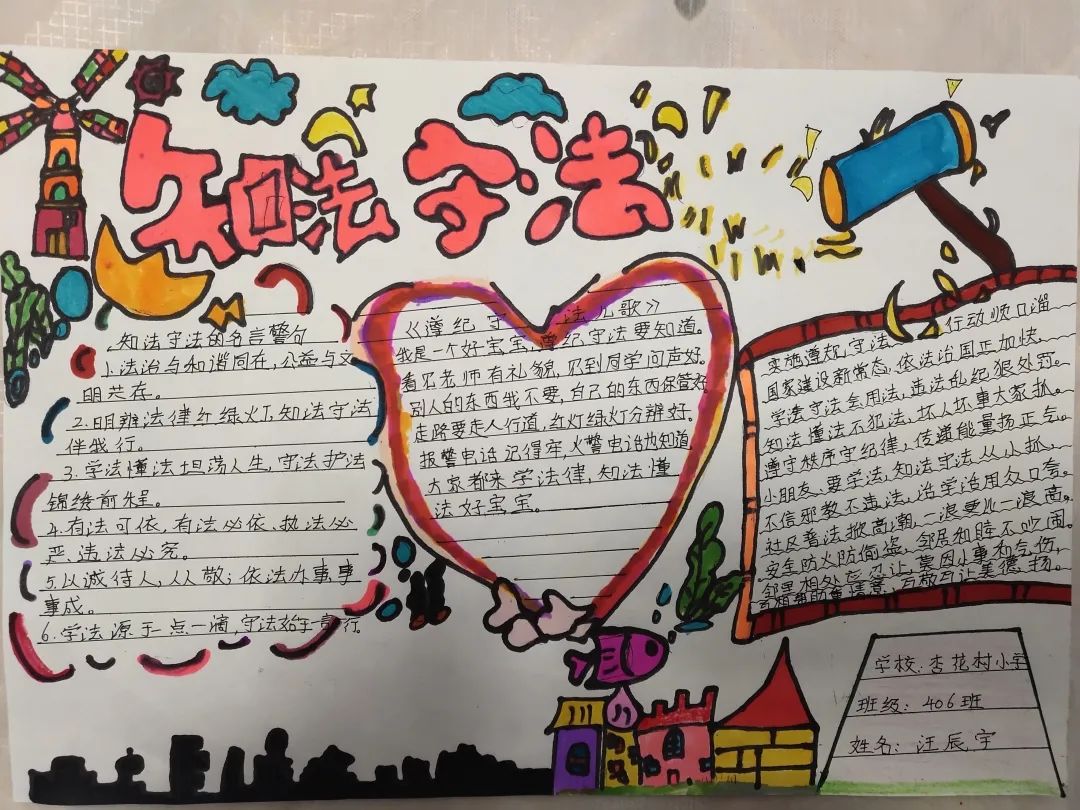 知法 守法
知法守法的名言警句
1.法治与和谐同在,公益与文
明共存。
2.明辨法律红绿灯,知法守法
伴我行。
3.学法懂法坦荡人生,守法护法
锦绣前程。
4.有法可依,有法必依、执法必
严违法必究。
5.以诚待人,人人敬;依法办事,事事
事成。
6.学法源于一点一滴,守法始于言行。
《遵纪守法儿歌》
我是一个好宝宝,遵纪守法要知道。
看见老师有礼貌,见到同学问声好。
别人的东西我不要,自己的东西保管好
走路要走人行道,红灯绿灯分辨好。
报警电话记得牢,火警电话也知道
大家都来学法律,知法懂
法好宝宝。
行动顺口溜
实施遵规,守法
国家建设新常态,依法治国正加快,
学法守法会用法,违法乱纪狠处罚。
知法懂法不犯法,坏人坏事大家抓。
遵守秩序守纪律,传递能量扬正气。
小朋友,要学法,知法守法从小抓,
不信邪教不违法,治学治用众口夸。
社区普法掀高潮,一浪要比一浪高。
安全防火防偷盗,邻居和睦不吵闹。
邻里相处忍让,莫因小事和气伤,
互相帮助重情意,互敬互让美德扬。
学校:杏花村小学
班级:406班
姓名:汪辰宇